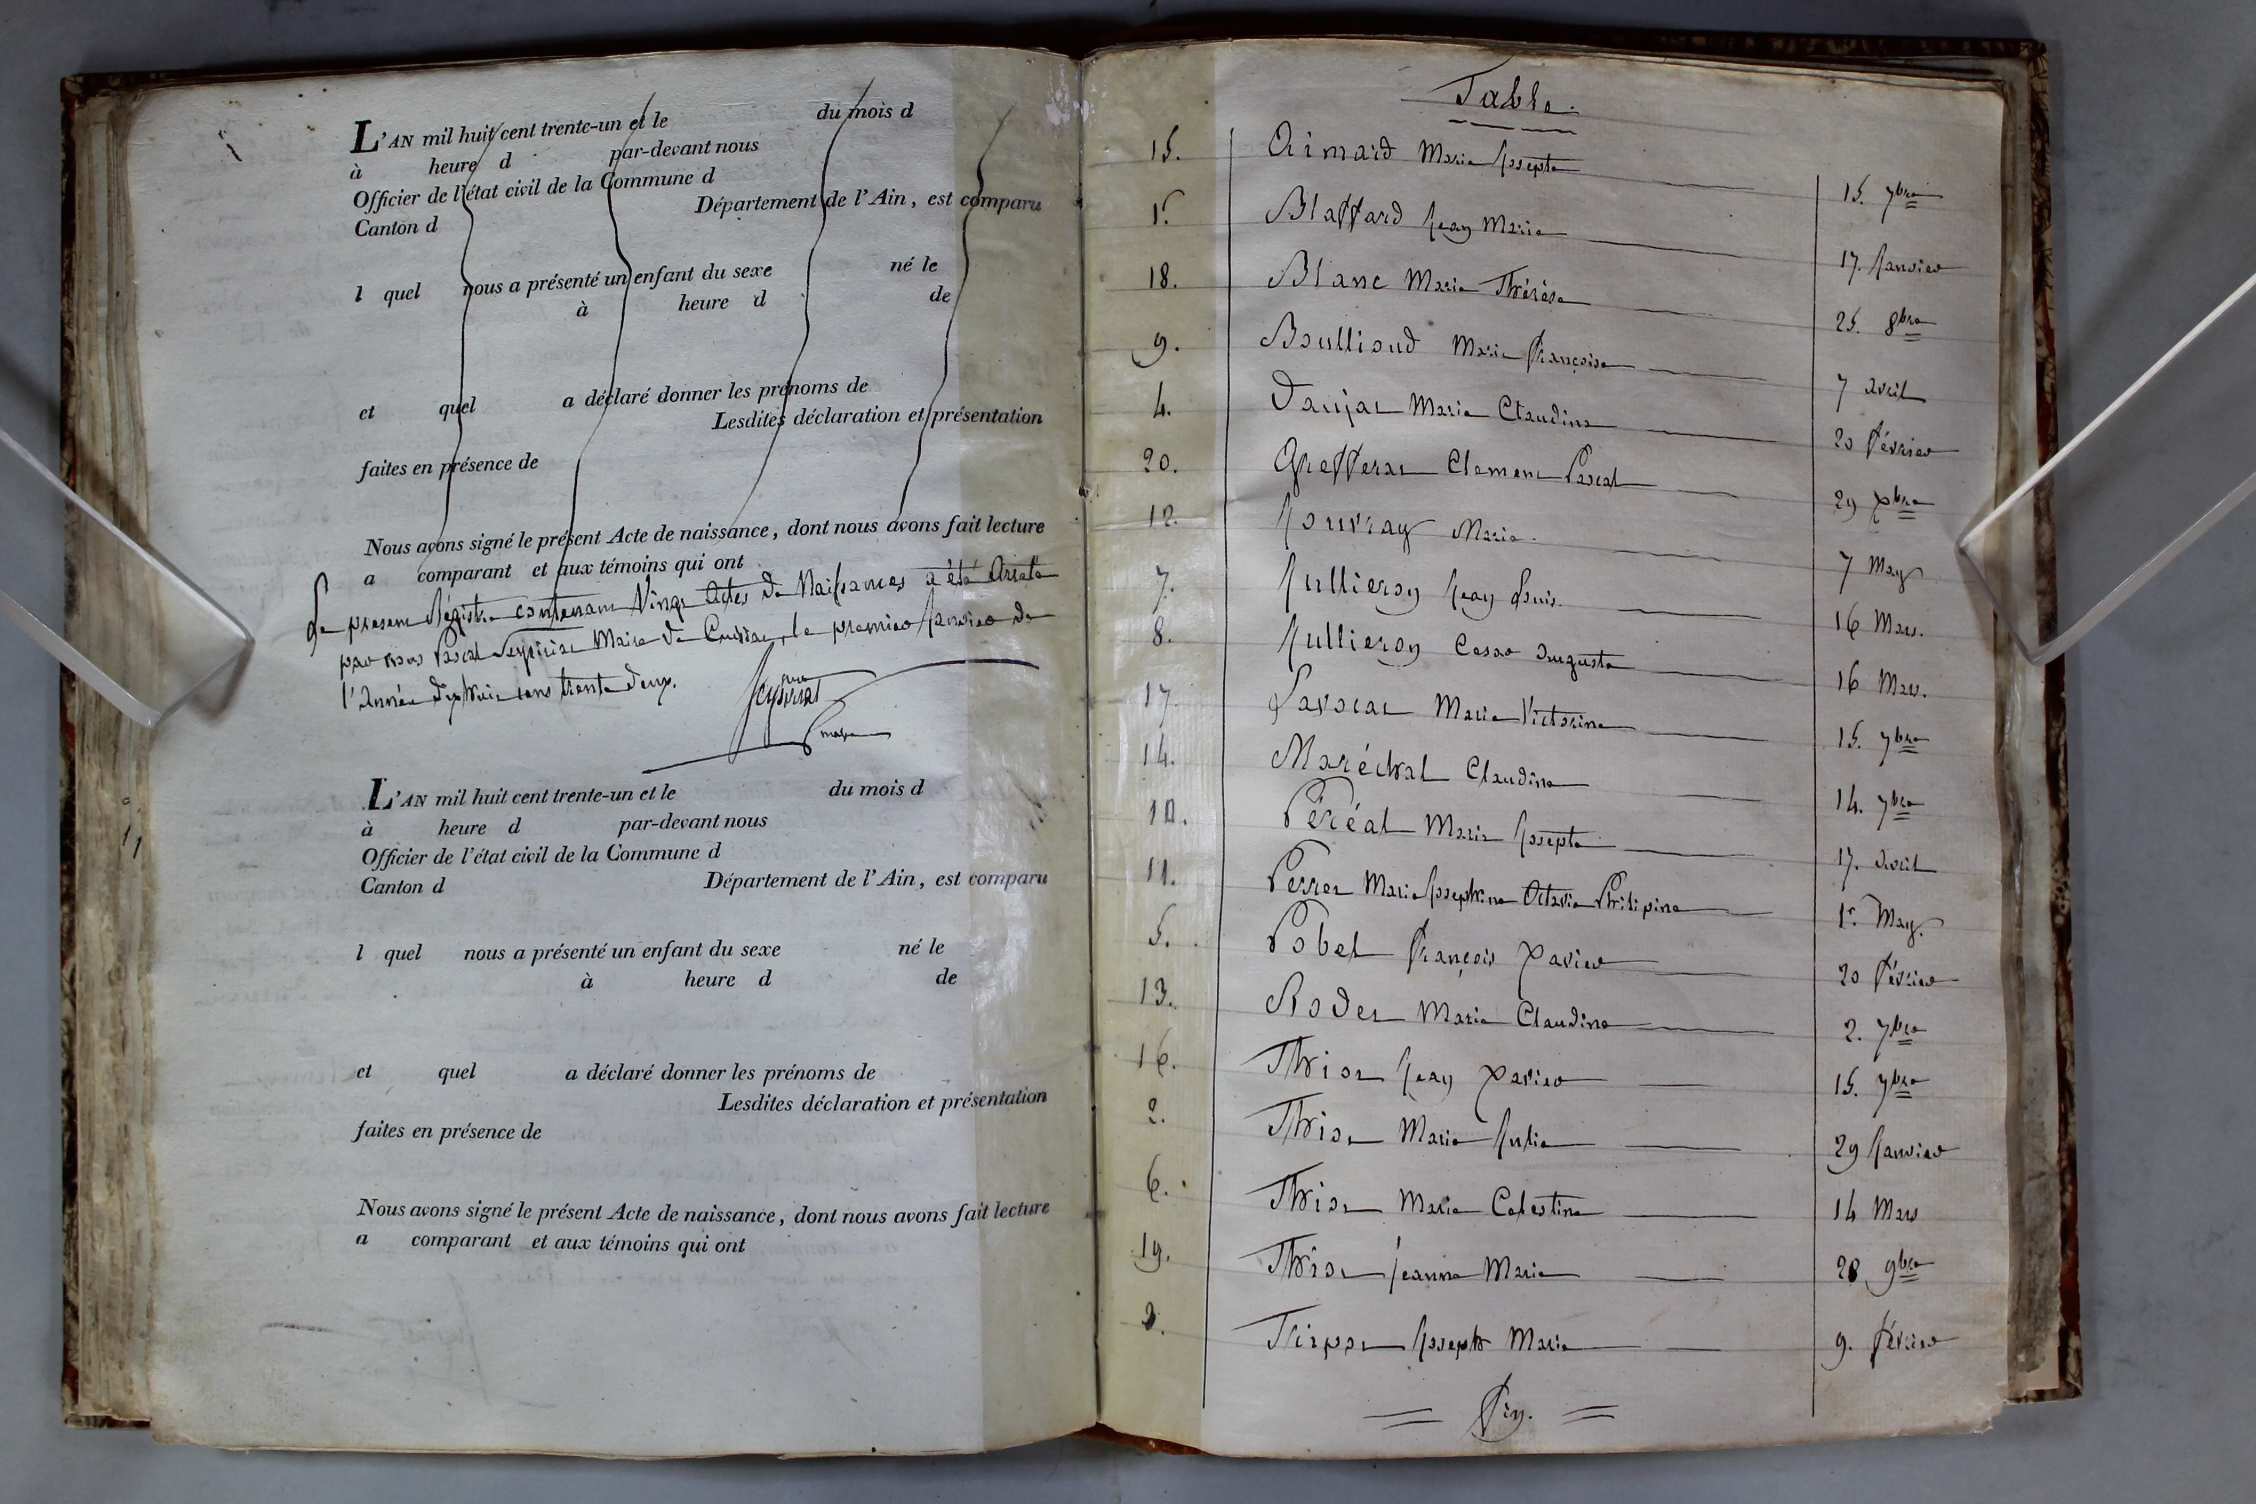 L'AN mil huit cent trente-un et le du mois d
à heure d par-devant nous
Officier de l'état civil de la Commune d
Canton d Département de l'Ain, est comparu
l quel nous a présenté un enfant du sexe né le
à heure d de
et quel a déclaré donner les prénoms de
Lesdites déclaration et présentation
faites en présence de
Nous avons signé le présent Acte de naissance, dont nous avons fait lecture
a comparant et aux témoins qui ont
Le present Régistre contenant Vingt Actes de Naissances a été Arreté
par nous Pascal Maire de le premier Janvier de
l'Année dixhuit cens trente deux.
maire
L'AN mil huit cent trente-un et le du mois d
à heure d par-devant nous
Officier de l'état civil de la Commune d
Canton d Département de l'Ain, est comparu
l quel nous a présenté un enfant du sexe né le
à heure d de
et quel a déclaré donner les prénoms de
Lesdites déclaration et présentation
faites en présence de
Nous avons signé le présent Acte de naissance, dont nous avons fait lecture
a comparant et aux témoins qui ont
Table.
15. Aimard Marie Josepte 15. 7bre
1. Blaffard Jean Marie 17. Janvier
18. Blanc Marie Thérèse 25. 8bre
9. Boullioud Marie Françoise 7 Avril
4. Danjat Marie Claudine 20 Février
20. Grefferat Clement Pascal 29 Xbre
12. Jouvray Marie 7 May
7. Jullieron Jean Louis 16 Mars.
8. Jullieron Cesar Auguste 16 Mars.
17 Lavocat Marie Victorine 15. 7bre
14. Maréchal Claudine 14. 7bre
10. Péréal Marie Josepte 17. Avril
11. Perret Marie Josephine Octavie Philipine 1r. May.
5. Pobel François Xavier 20 Février
13. Rodet Marie Claudine 2. 7bre
16. Thiot Jean Xavier 15. 7bre
2. Thiot Marie Julie 29 Janvier
6. Thiot Marie Celestine 14 Mars
19. Thiot Jeanne Marie 28 9bre
3. Tirpot Joseph Marie 9. Février
Fin.